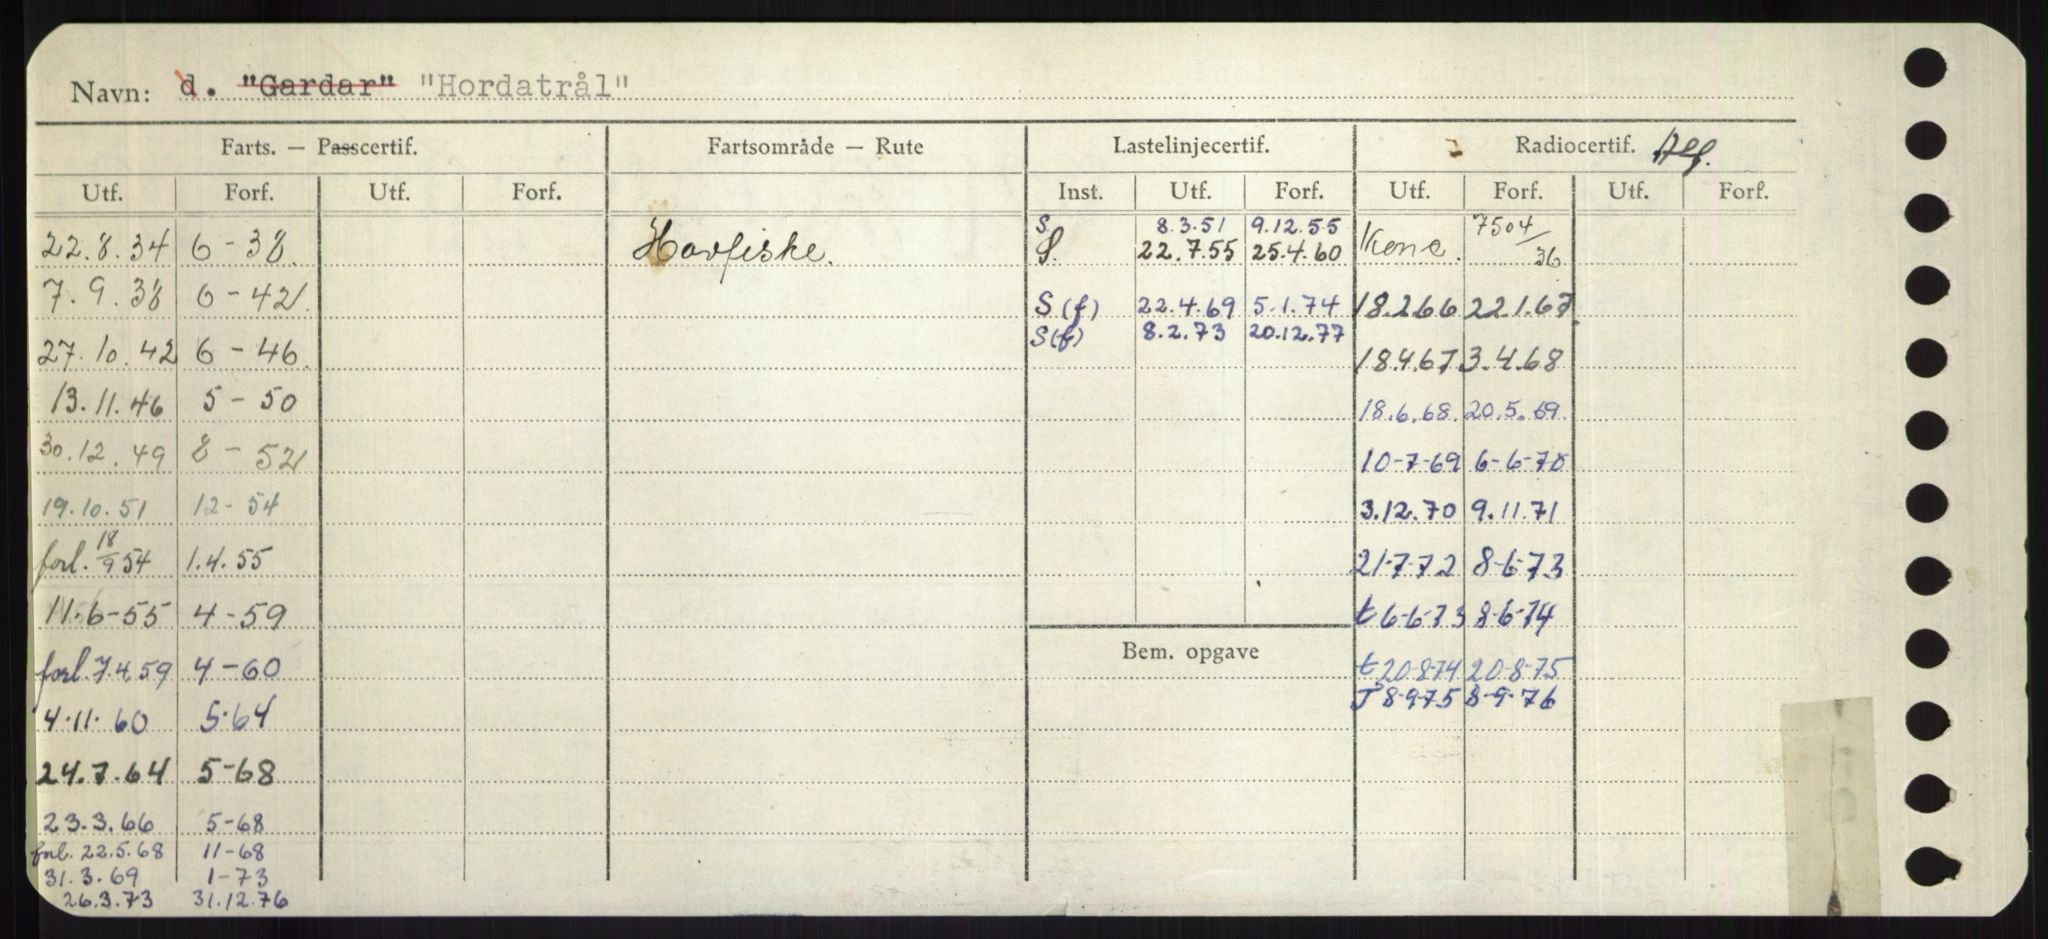 Navn: d. "Gardar" "Hordatrål"
Farts. — Passcertif. Fartsområde — Rute Lastelinjecertif. Radiocertif.
Utf. Forf. Utf. Forf. Inst. Utf. Forf. Utf. Forf. Utf. Forf.
S. 8.3.51 9.12.55 7504/36
22.8.34 6-38. Havfiske. S. 22.7.55 25.4.60
7.9.38 6-42 S(f) 22.4.69 5.1.74 18.2.66 22.1.67
S(f) 8.2.73 20.12.77
27.10.42 6-46. 18.4.67 3.4.68
13.11.46 5-50 18.6.68. 20.5.69
30.12.49 8-52 10-7-69 6-6-70
19.10.51 12-54 3.12.70 9.11.71
forl. 18/9 54 1.4.55 21-7-72 8-6-73
11.6-55 4-59 t 6-6-73 8-6-74
Bem. opgave
forl. 7.4.59 4-60 t 20-8-74 20-8-75
T 8-9-75 8-9-76
4.11.60 5.64
24.7.64 5-68
23.3.66 5-68
forl. 22.5.68 11-68
31.3.69 1-73
26.3.73 31.12.76